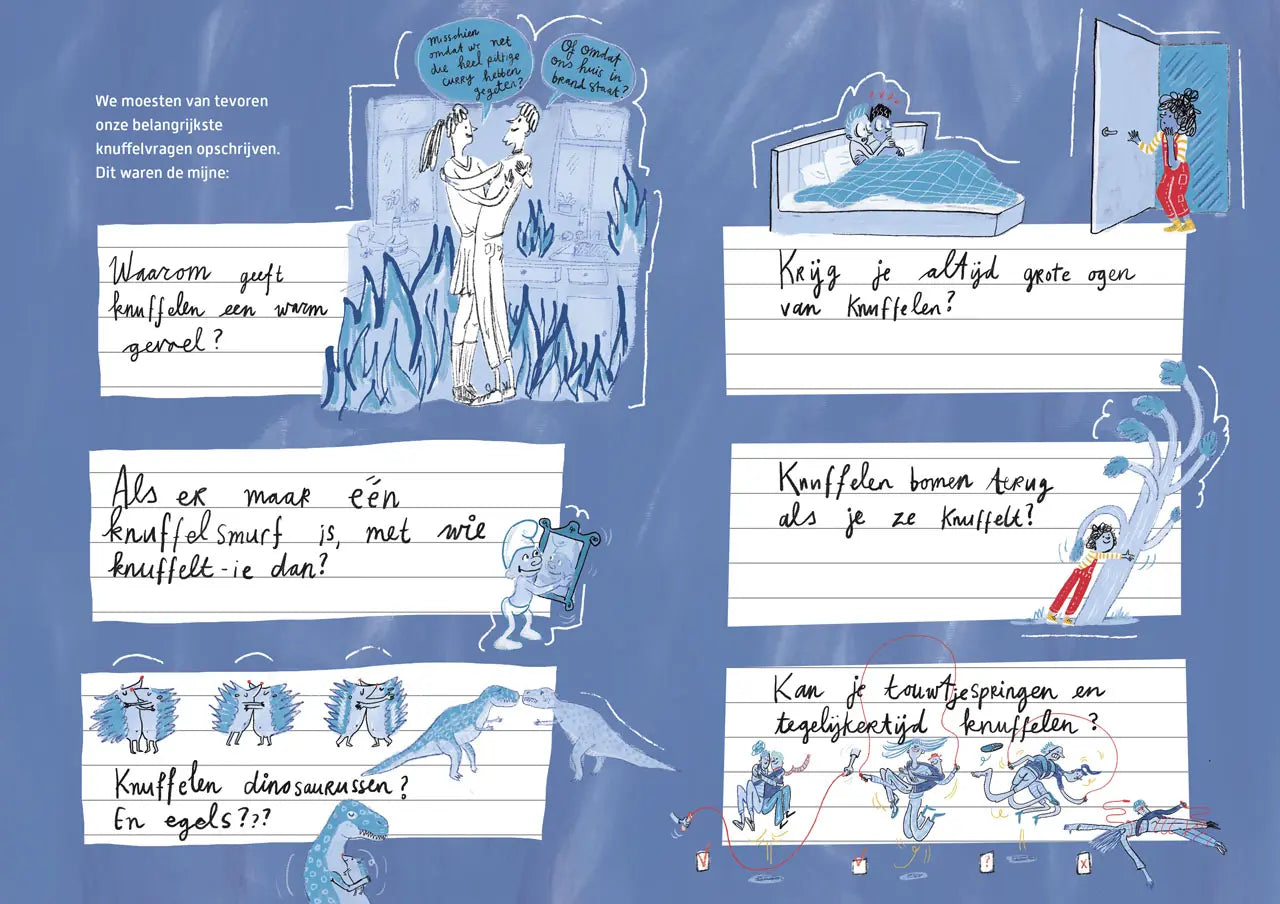 We moesten van tevoren
onze belangrijkste
knuffelvragen opschrijven.
Dit waren de mijne:
Misschien
omdat we net
die heel pittige
curry hebben
gegeten?
Of omdat
ons huis in
brand staat?
Waarom geeft
knuffelen een warm
gevoel?
Als er maar één
knuffelsmurf is, met wie
knuffelt-ie dan?
Knuffelen dinosaurussen?
En egels???
Krijg je altijd grote ogen
van knuffelen?
Knuffelen bomen terug
als je ze knuffelt?
Kan je touwtjespringen en
tegelijkertijd knuffelen?
V
V
?
X